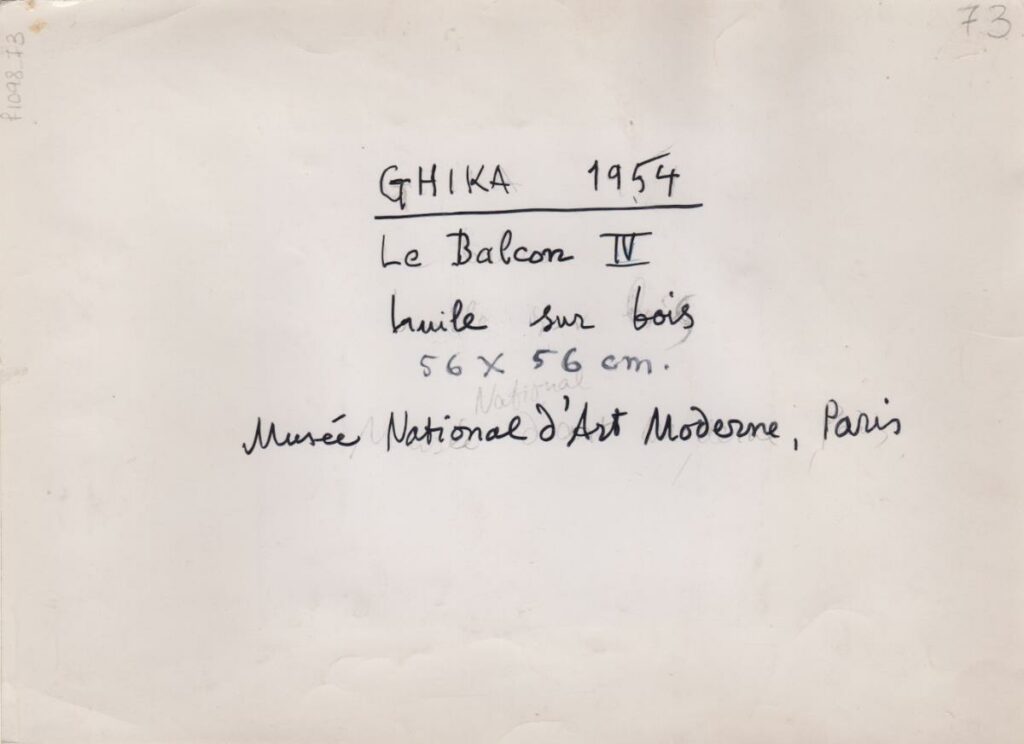 73
f1098_73
GHIKA 1954
Le Balcon IV
huile sur bois
56 x 56 cm.
National
Musée National d'Art Moderne, Paris